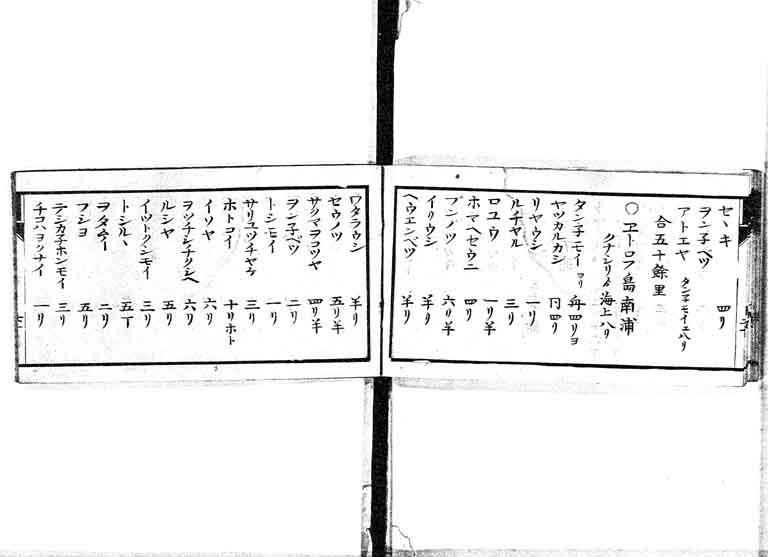 セヽキ 四リ
ヲン子ベツ
アトエヤ タン子モイエ八リ
合五十餘里
〇ヱトロフ島南浦
クナシリゟ海上八リ
タン子モイ ヨリ 舟四リヨ
ヤツカルカシ 同四リ
リヤウシ 一リ
ルチヤル 三リ
ロユウ 一リ半
ホマヘセウニ 四リ
フンノツ 六リ半
イリウシ 半リ
ヘウエンベツ 半リ
ワタラウシ 半リ
セウノツ 五リ半
サクマヲコツヤ 四リ半
ヲン子ベツ 二リ
トシモイ 一リ
サリユウチヤケ 三リ
ホトコイ 十リホト
イソヤ 六リ
ヲツチシナリシヘ 六リ
ルシヤ 五リ
イツトクンモイ 三リ
トシルヽ 五丁
ヲタムイ 二リ
フシヨ 五リ
テシカ子ホンモイ 三リ
チコハヨツナイ 一リ